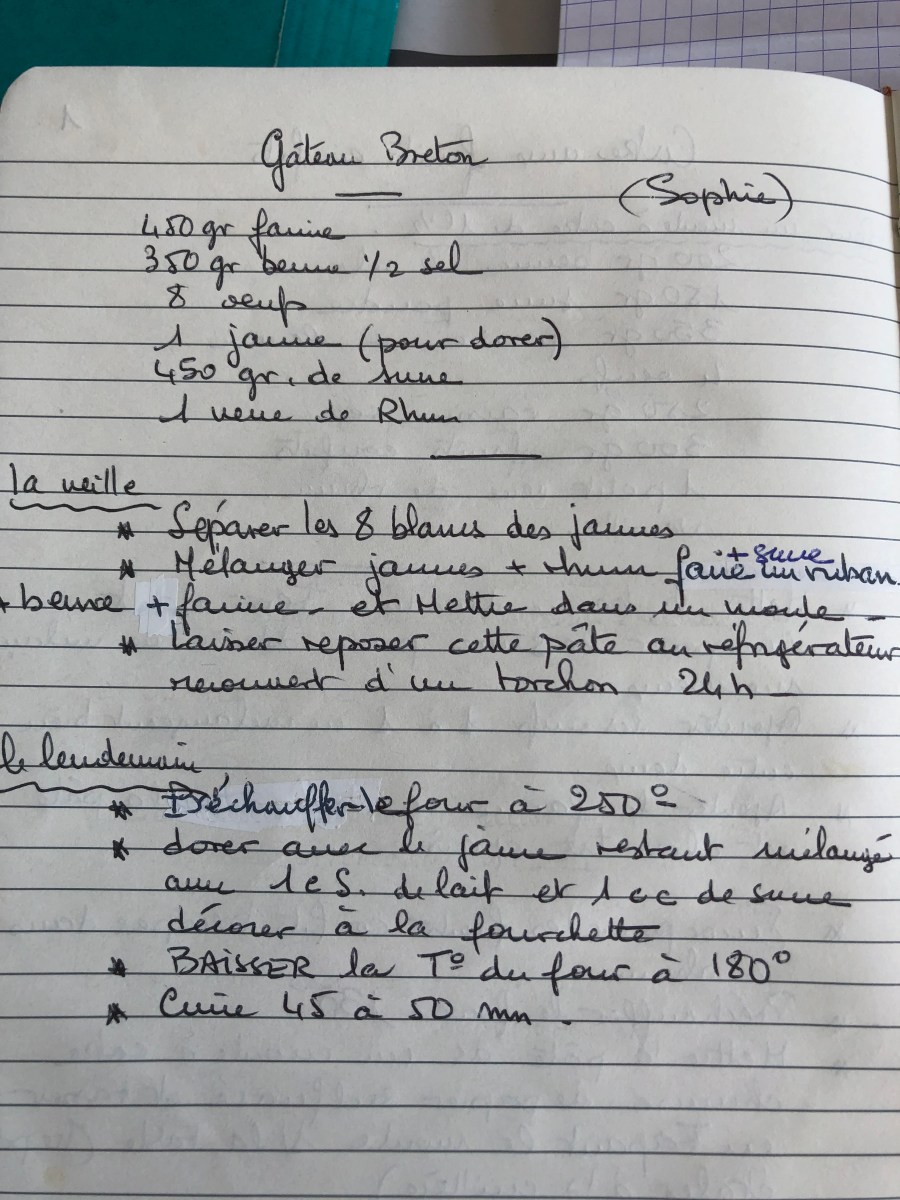 1
Gâteau Breton
(Sophie)
450 gr farine
350 gr beurre 1/2 sel
8 oeufs
1 jaune (pour dorer)
450 gr. de sucre
1 verre de Rhum
la veille
* Séparer les 8 blancs des jaunes
+ sucre
* Mélanger jaunes + rhum faire un ruban
+ beurre + farine - et Mettre dans un moule -
* Laisser reposer cette pâte au réfrigérateur
recouvert d'un torchon 24h -
le lendemain
* Préchauffer le four à 250°
* dorer avec le jaune restant mélangé
avec 1 c S. de lait et 1 cc de sucre
décorer à la fourchette
* BAISSER la T° du four à 180°
* Cuire 45 à 50 mn.